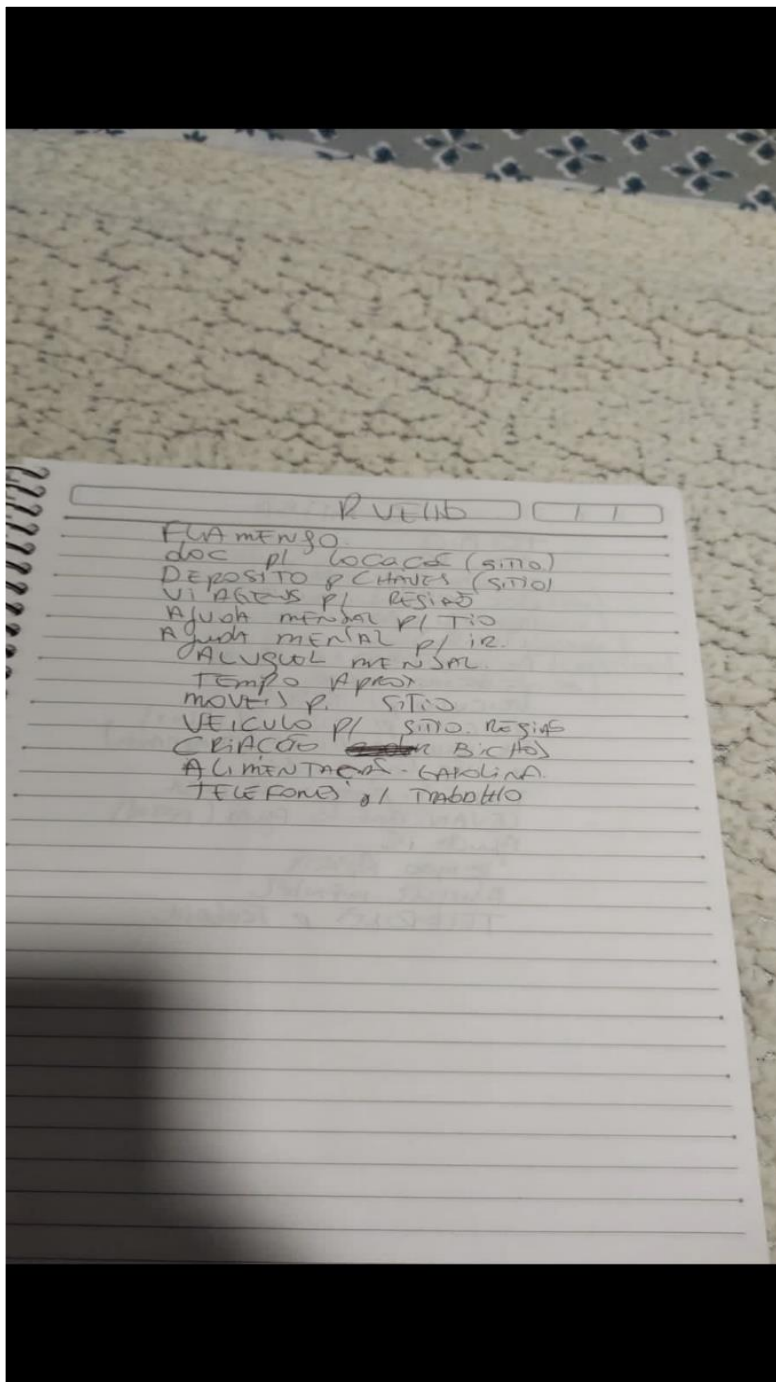 P VELHO
FLAMENGO
doc p/ LOCACAO (SITIO)
DEPOSITO P CHAVES (SITIO)
VIAGENS P/ REGIAO
AJUDA MENSAL P/ TIO
AJUDA MENSAL P/ IR.
ALUGUEL MENSAL
TEMPO APROX
MOVEIS P. SITIO
VEICULO P/ SITIO. REGIAO
CRIAÇÃO BICHOS
ALIMENTAÇÃO - GASOLINA.
TELEFONES p/ TRABALHO